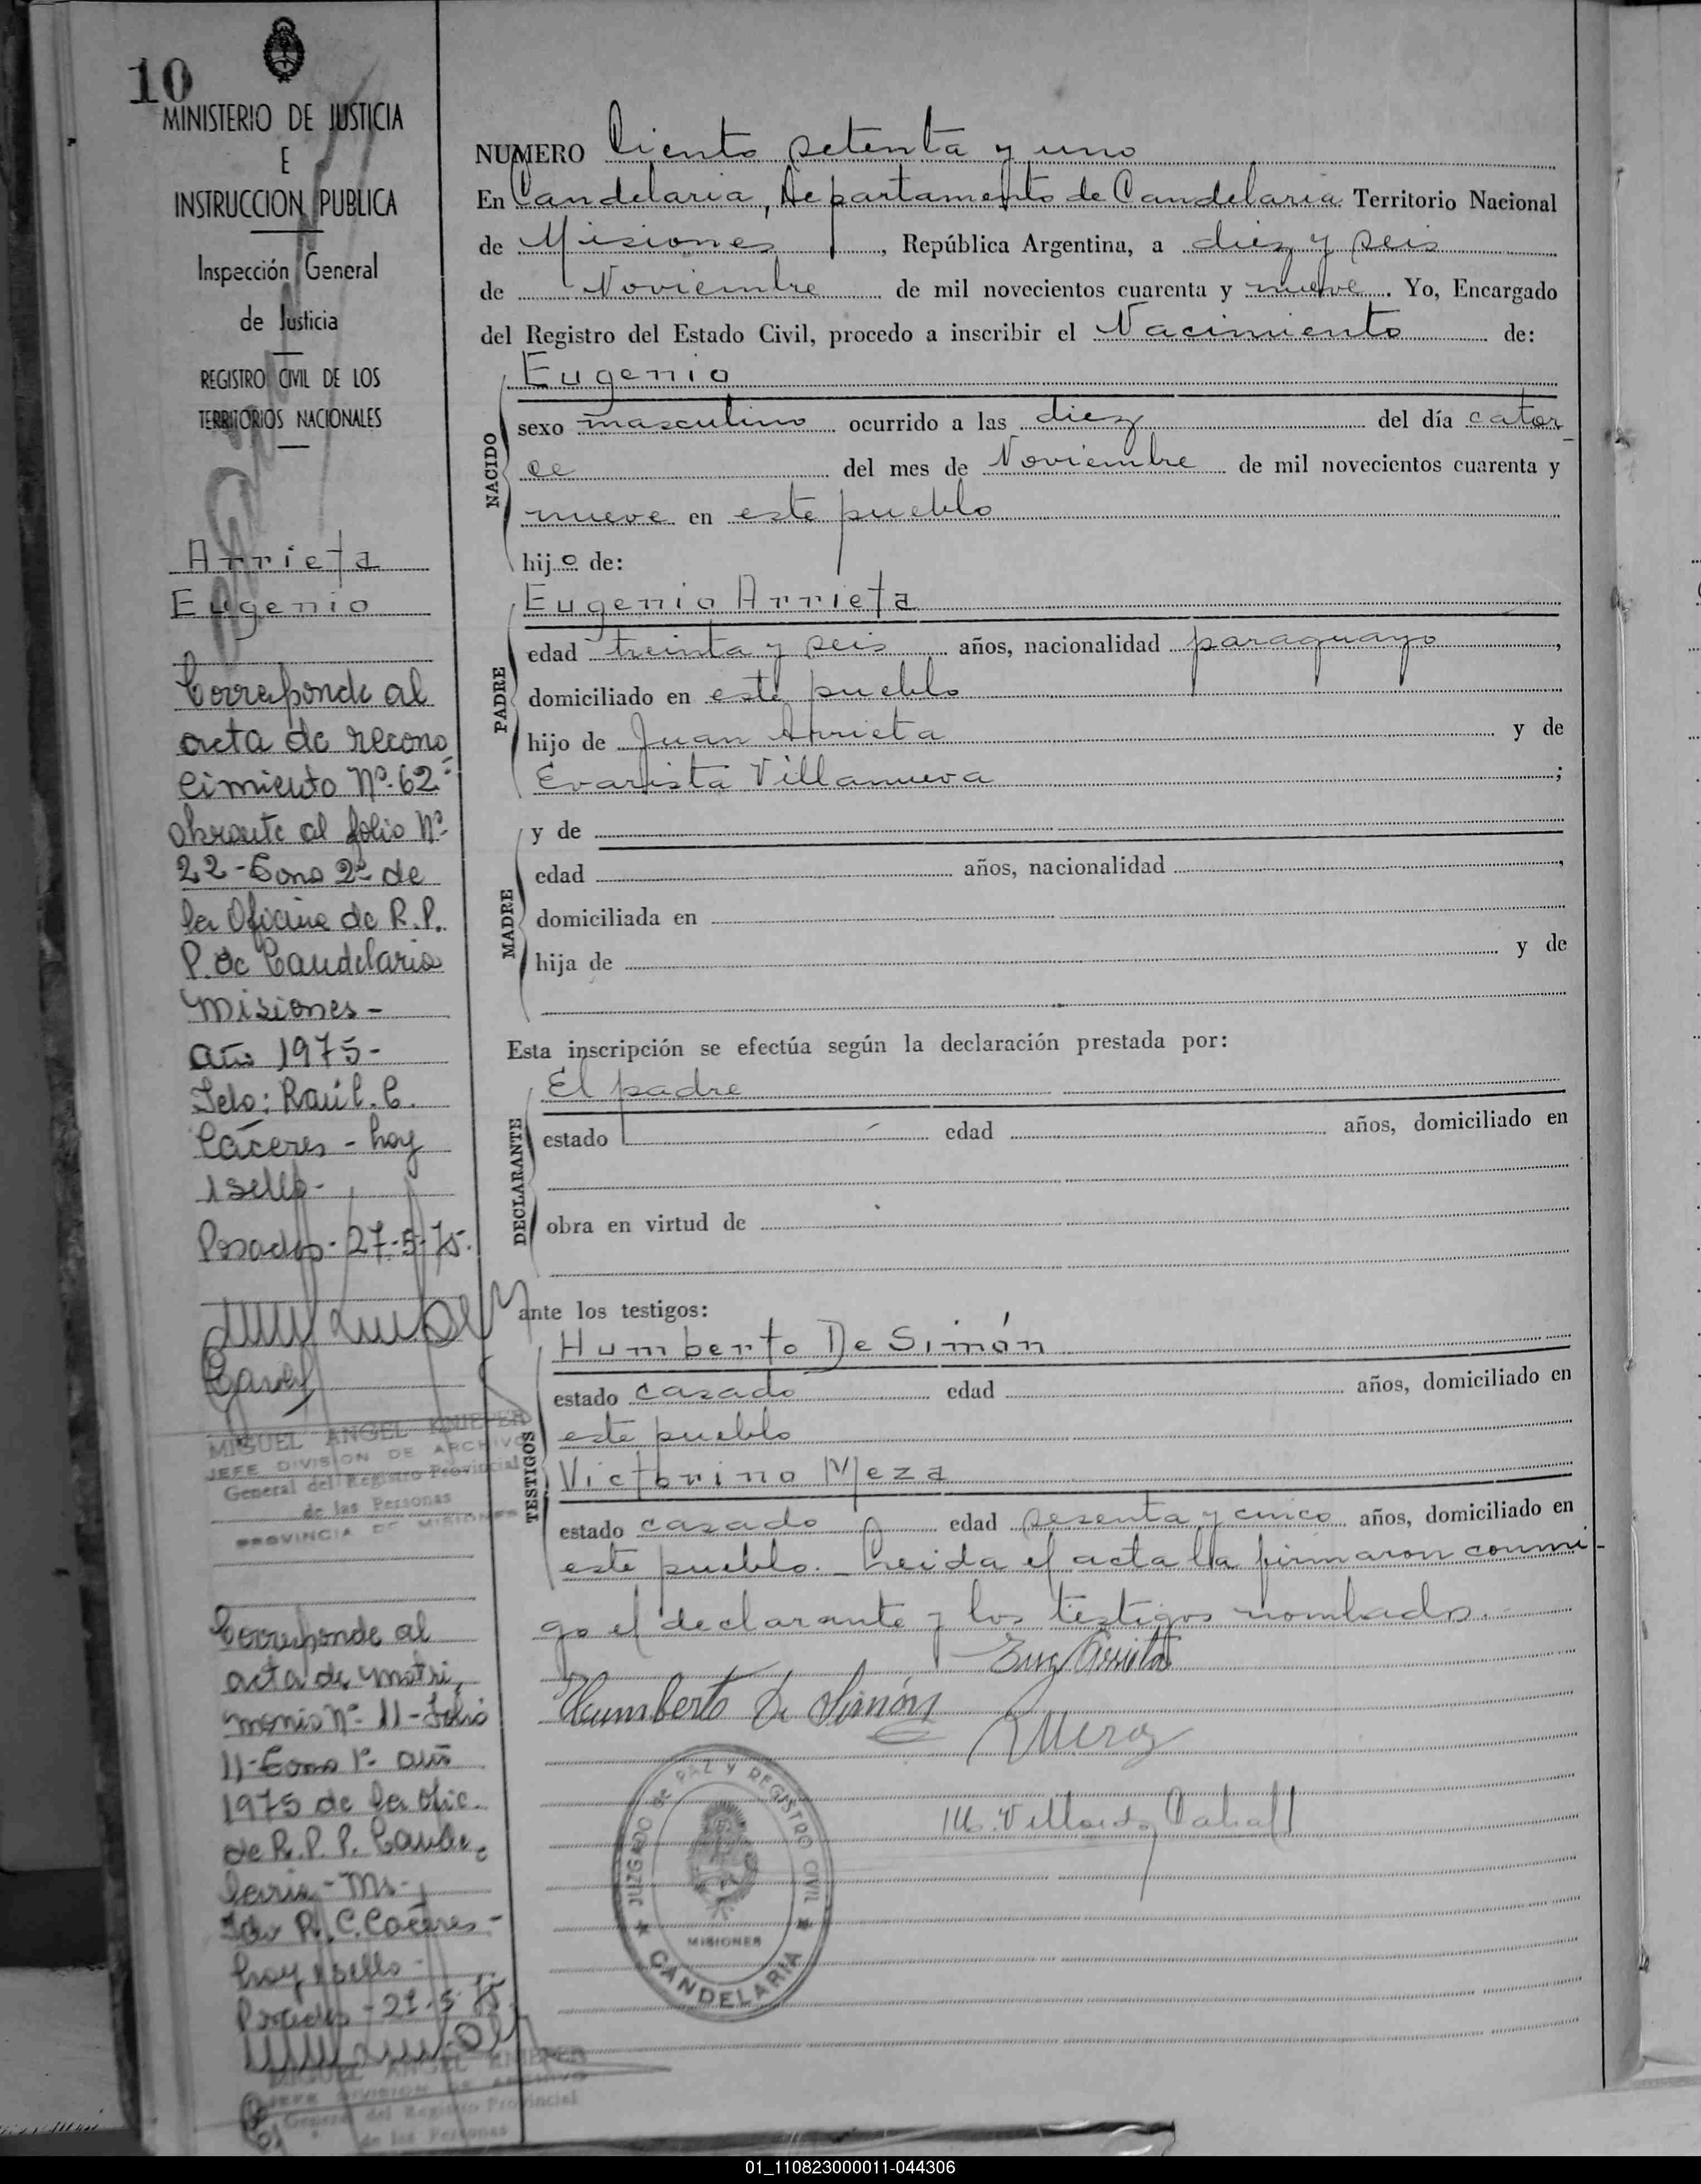 10
MINISTERIO DE JUSTICIA
E
INSTRUCCION PUBLICA
Inspección General
de Justicia
REGISTRO CIVIL DE LOS
TERRITORIOS NACIONALES
Arrieta
Eugenio
Corresponde al
acta de recono
cimiento Nº 62-
obrante al folio Nº
22-Tomo 2º de
la Oficina de R.P.
P. de Candelaria
Misiones-
Año 1975-
Fdo: Raúl. C.
Cáceres - hay
1 sello-
Posadas-27-5-75.
MIGUEL ANGEL KNIEPER
JEFE DIVISION DE ARCHIVO
General del Registro Provincial
de las Personas
PROVINCIA DE MISIONES
Corresponde al
acta de matri,
monio Nº 11-Folio
11-Tomo 1º año
1975 de la Ofic.
de R.P.P. Cande,
laria-Ms-
Fdo R.C.Cáceres-
hay 1 sello-
Posadas-27-5-75
MIGUEL ANGEL KNIEPER
JEFE DIVISION DE ARCHIVO
General del Registro Provincial
de las Personas
NUMERO Ciento setenta y uno
En Candelaria, Departamento de Candelaria Territorio Nacional
de Misiones, República Argentina, a diez y seis
de Noviembre de mil novecientos cuarenta y nueve. Yo, Encargado
del Registro del Estado Civil, procedo a inscribir el Nacimiento de:
NACIDO
Eugenio
sexo masculino ocurrido a las diez del día cator-
ce del mes de Noviembre de mil novecientos cuarenta y
nueve en este pueblo
hijo de:
PADRE
Eugenio Arrieta
edad treinta y seis años, nacionalidad paraguayo,
domiciliado en este pueblo
hijo de Juan Arrieta y de
Evarista Villanueva;
MADRE
y de
edad años, nacionalidad,
domiciliada en
hija de y de
Esta inscripción se efectúa según la declaración prestada por:
DECLARANTE
El padre
estado edad años, domiciliado en
obra en virtud de
ante los testigos:
TESTIGOS
Humberto De Simón
estado casado edad años, domiciliado en
este pueblo
Victorino Meza
estado casado edad sesenta y cinco años, domiciliado en
este pueblo.- Leida el acta la firmaron conmi-
go el declarante y los testigos nombrados.
Eug Arrieta
Humberto De Simón
VMeza
JUZGADO DE PAZ Y REGISTRO CIVIL
MISIONES
CANDELARIA
01_110823000011-044306